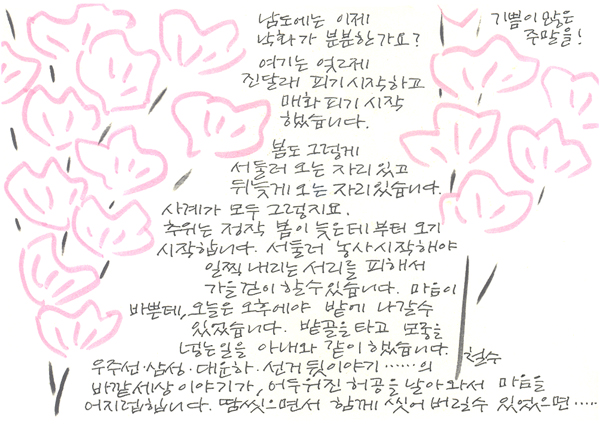 남도에는 이제
낙화가 분분한가요?
여기는 엊그제
진달래 피기시작하고
매화 피기 시작
했습니다.
봄도 그렇게
서둘러 오는 자리 있고
뒤늦게 오는 자리 있습니다.
사계가 모두 그렇지요.
추위는 정작 봄이 늦은데부터 오기
시작합니다. 서둘러 농사시작해야
일찍 내리는 서리를 피해서
가을걷이 할수있습니다. 마음이
바쁜데, 오늘은 오후에야 밭에 나갈수
있었습니다. 밭골을 타고 모종을
넣는일을 아내와 같이 했습니다.
우주선·삼성·대운하·선거 뒷이야기 ……의
바깥세상 이야기가, 어두워진 허공을 날아와서 마음을
어지럽힙니다. 땀씻으면서 함께 씻어 버릴수 있었으면……
철수
기쁨이 많은
주말을!